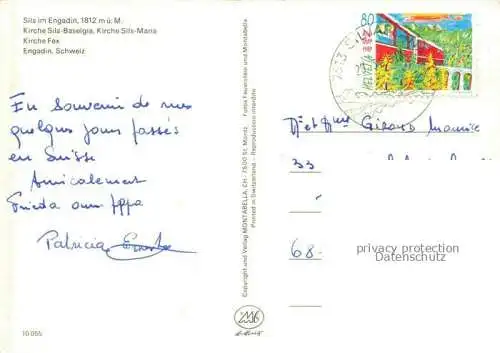 Sils im Engadin, 1812 m ü. M.
Kirche Sils-Baselgia, Kirche Sils-Maria
Kirche Fex
Engadin, Schweiz
En souvenir de nos
quelques jours passés
en Suisse
Amicalement
Frieda
Patricia
10 055
Copyright und Verlag MONTABELLA, CH - 7500 St. Moritz
Printed in Switzerland - Reproduction interdite
Fotos Feuerstein und Montabella
80
HELVETIA
7513 SILVA
M et Mme Girard Maurice
33
68-
privacy protection
Datenschutz